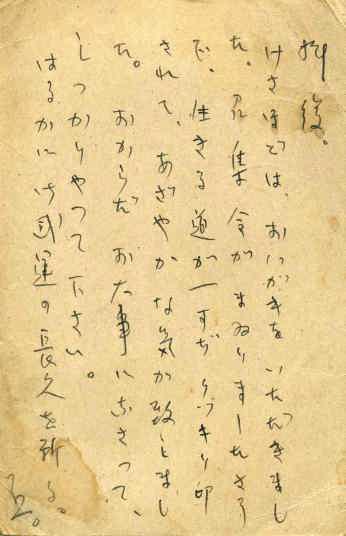 拝復。
けさほどは、おハガキをいただきまし
た。召集令がまゐりましたさう
で、生きる道が一すぢクッキリ印
されて、あざやかな気が致しまし
た。おからだお大事になさって、
しっかりやって下さい。
はるかに御国運の長久を祈る。